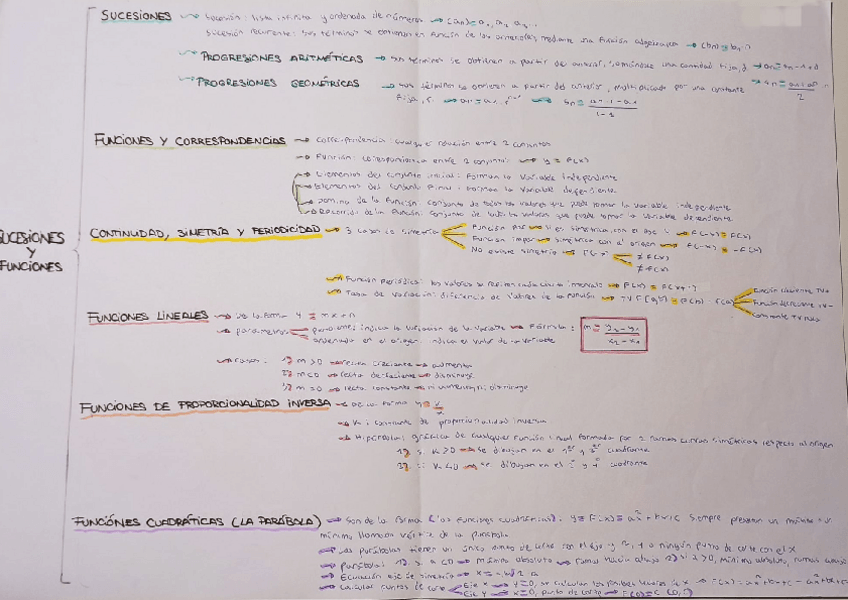 SUCESIONES
Sucesión: lista infinita y ordenada de números → (an) = a1, a2, a3...
Sucesión recurrente: sus términos se obtienen en función de los anteriores mediante una función
PROGRESIONES ARITMÉTICAS → sus términos se obtienen a partir del anterior, sumándose una cantidad fija, d
PROGRESIONES GEOMÉTRICAS → sus términos se obtienen a partir del anterior, multiplicado por una constante
fija, r.
FUNCIONES Y CORRESPONDENCIAS → Correspondencia: relación entre 2 conjuntos
→ Función: correspondencia entre 2 conjuntos → y = F(x)
→ Elementos del conjunto inicial: Forman la variable independiente
→ Elementos del conjunto final: Forman la variable dependiente.
→ Dominio de la función: conjunto de todos los valores que puede tomar la variable independiente
→ Recorrido de la Función: conjunto de todos los valores que puede tomar la variable dependiente
SUCESIONES
Y
FUNCIONES
CONTINUIDAD, SIMETRÍA Y PERIODICIDAD → 3 casos de simetría
Función par → F(-x) = F(x)
Función impar → simétrica con al origen → F(-x) = -F(x)
No existe simetría → F(-x) ≠ F(x)
≠ -F(x)
→ Función periódica: los valores se repiten cada cierto intervalo
→ Tasa de variación: diferencia de valores de la función
Función creciente TV+
Función decreciente TV-
Constante TV nula
FUNCIONES LINEALES → de la forma y = mx + n
→ parámetros
pendiente: indica la variación de la variable → Fórmula: m = y2 - y1 / x2 - x1
ordenada en el origen: indica el valor de la variable
→ casos: 1) m > 0 → recta creciente → aumenta
2) m < 0 → recta decreciente → disminuye
3) m = 0 → recta constante → ni aumenta, ni disminuye
FUNCIONES DE PROPORCIONALIDAD INVERSA → De la forma y = k/x
→ K: constante de proporcionalidad inversa
→ Hipérbola: gráfica de cualquier función formada por 2 ramas curvas simétricas respecto al origen
1) si K > 0 → se dibujan en el 1er y 3er cuadrante
2) si K < 0 → se dibujan en el 2º y 4º cuadrante
FUNCIÓNES CUADRÁTICAS (LA PARÁBOLA) → Son de la forma (las funciones cuadráticas): y = F(x) = ax² + bx + c siempre presentan un máximo o un
mínimo llamado vértice de la parábola
→ Las parábolas tienen un único punto de corte con el eje y 2, 1 o ningún punto de corte con el X
→ parábola: 1) si a < 0 → máximo absoluto → ramas hacia abajo 2) si a > 0, mínimo absoluto, ramas
→ Ecuación eje de simetría → x = -b/2a
→ Calcular puntos de corte
Eje X → y = 0, se calculan los posibles valores de x
Eje Y → x = 0, punto de corte → F(0) = C (0, C)